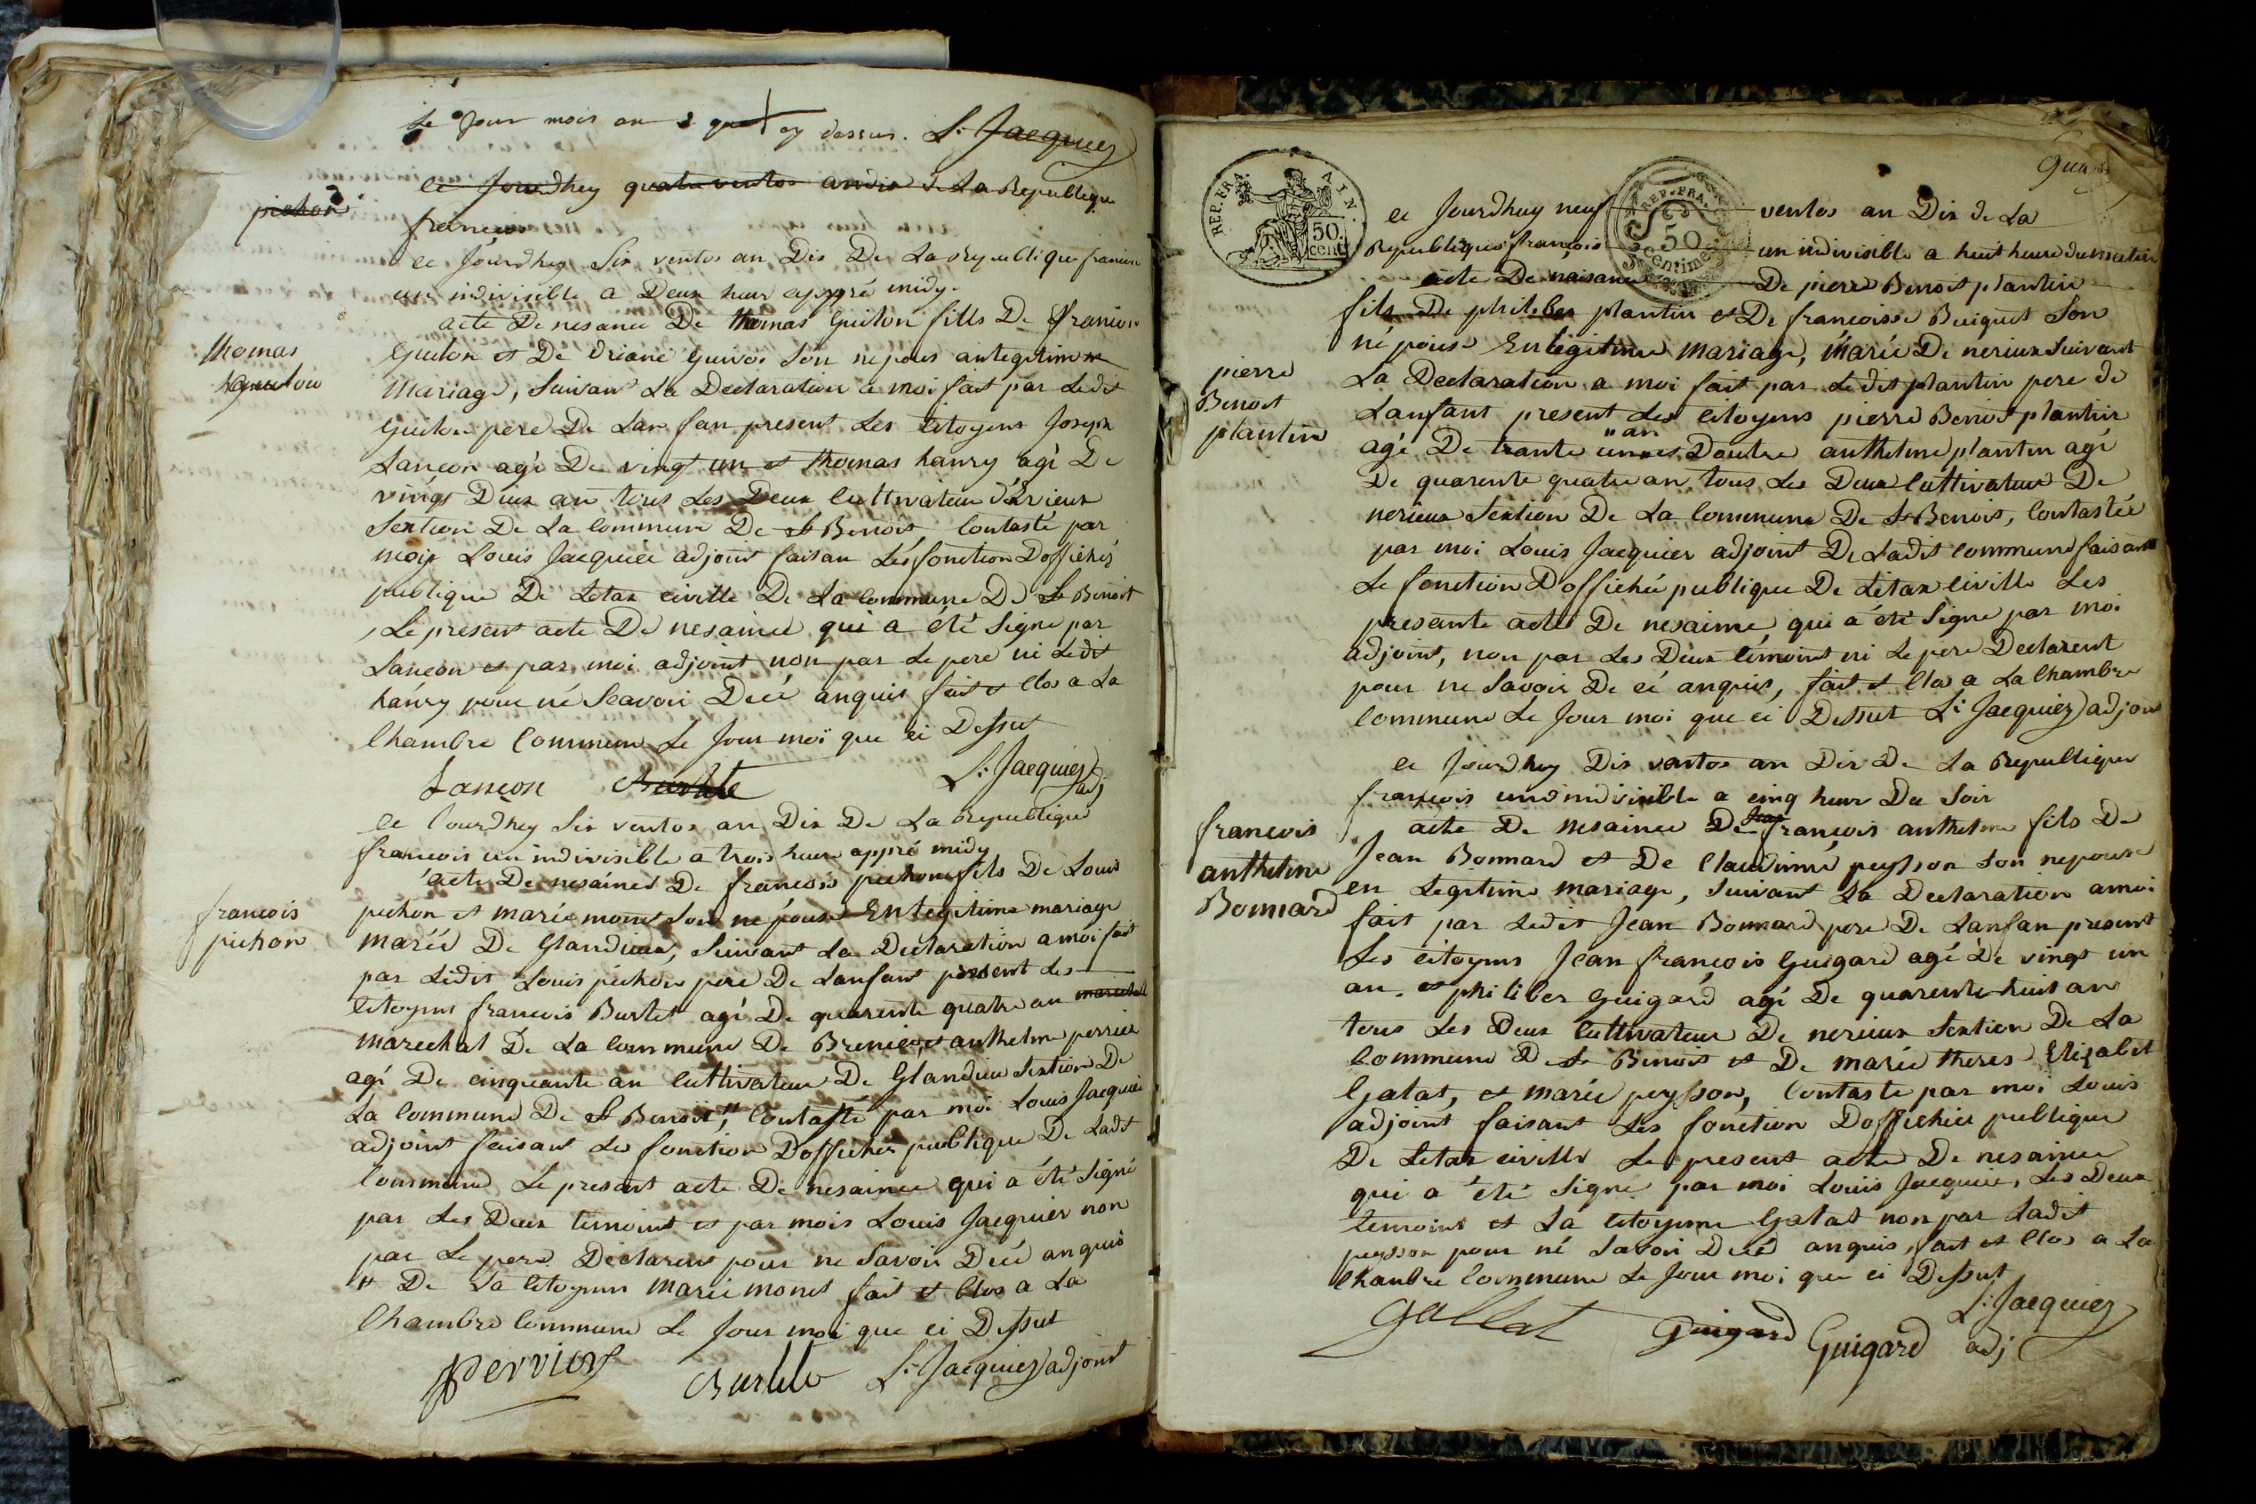 le Jour mois an que cy dessus. Ls. Jacquiez
ce Jourdhuy quatre ventos an dix de La Republique
pichon
francois
ce Jourdhuy Six ventos an Dix De La Republique francois
un indivisible a Deux heur appré midy.
acte De nesance De thomas Guiton fills De francois
thomas
Guiton et De Guivos Son nepous antegitime
Mariage, Suivant La Declaration a moi fait par Ledit
Guiton pere De Lanfan present Les Citoyens Joseph
Lançon agé De vingt un et thomas hanry agé De
vingt Deux an tous Les Deux Cultivateur
Sextion De La Commune De St Benoit Contasté par
moi Louis Jacquiée adjoint faisan Les fonction Doffichés
publique De Letax civille De La Commune De St Benoit
, Le present acte De nesaince qui a été Signe par
Lancon et par moi adjoint non par Le pere ni Ledit
hanry pour né Scavoir Decé anquis fait et Clos a La
Chambre Commune Le Jour moi que ci Dessut
Lançon Ls. Jacquiez adj
ce Courdhuy Six ventos an Dix De La Republique
francois un indivisible a trois heure appré midy
acte De nesaince De francois pichon fils De Louis
francois
pichon
pichon et marie monet Son népouse En Legitime mariage
mariée De Glandieu, Suivant La Declaration a moi fait
par Ledit Louis pichon pere De Lanfant present Les
Citoyens francois Burlet agé De quarente quatre an marechal
marechal De La Commune De Brenier, et anthelme perrier
agé De cinquante an Cultivateur De Glandieu Sextion De
La Commune De St Benoit," Contasté par moi Louis Jacquier
adjoint faisant Les fonction Dofficher publique De Ladit
Commune Le present acte De nesaince qui a été Signé
par Les Deux temoint et par mois Louis Jacquier non
par Le pere Declarent pour ne Savoir Decé anquis
" De La Citoyenne Marie monet fait et Clos a La
Chambre Commune Le Jour moi que ci Dessut
perrier Burlet Ls. Jacquiez adjoint
REP. FRA. AIN.
50. cent.
REP. FRA.
50
Centimes
ce Jourdhuy neuf ventos an Dix de La
Republique françois un indivisible a huit heure du matin
acte De naisance De pierre Benoit plantin
fils De philiber plantin et De francoisse Buiquet Son
né pouse En legitime Mariage, mariée De nerieux Suivant
pierre
Benoit
plantin
La Declaration a moi fait par Ledit plantin pere de
Lanfant present Les Citoyens pierre Benoit plantin
agé De trante un an et Doutre anthelme plantin agé
De quarente quatre an tous Les Deux Cultivateur De
nerieux Sextion De La Commune De St Benois, Contastée
par moi Louis Jacquier adjoint De Ladit commune faisant
Le fonction Dofficheé publique De Letax civille Les
presante actes De nesaince, qui a été Signe par moi
adjoint, non par Les Deux temoint ni Le pere Declarent
pour ne Savoir De cé anquis, fait et Clos a La Chambre
Commune Le Jour moi que ci Dessut Ls. Jacquiez adjoin
ce Jourdhuy Dix ventos an Dix De La Republique
francois un indivisible a cinq heur Du Soir
francois
anthelme
Bonnard
acte De nesaince De Jean françois anthelme fils De
Jean Bonnard et De Claudinné peysson Son nepouse
en Legitime mariage, Suivant La Declaration amoi
fait par Ledit Jean Bonnard pere De Lanfan present
Les Citoyens Jean françois Guigard agé De vingt un
an. et philiber Guigard agé De quarente huit an
tous Les Deux Cultivateur De nerieux Sextion De La
Commune De St Benoit et De marie theres Elizabet
Galat, et marie peysson, Contasté par moi Louis
adjoint faisant Les fonction Dofficher publique
De Letax civille Le present acte De nesaince
qui a été Signé par moi Louis Jacquier, Les Deux
temoint et La Citoyenne Galat non par Ladit
peysson pour né Savoir Decé anquis, fait et Clos a La
Chambre Commune Le Jour moi que ci Dessut
Gallat Guigard Guigard Ls. Jacquiez adj